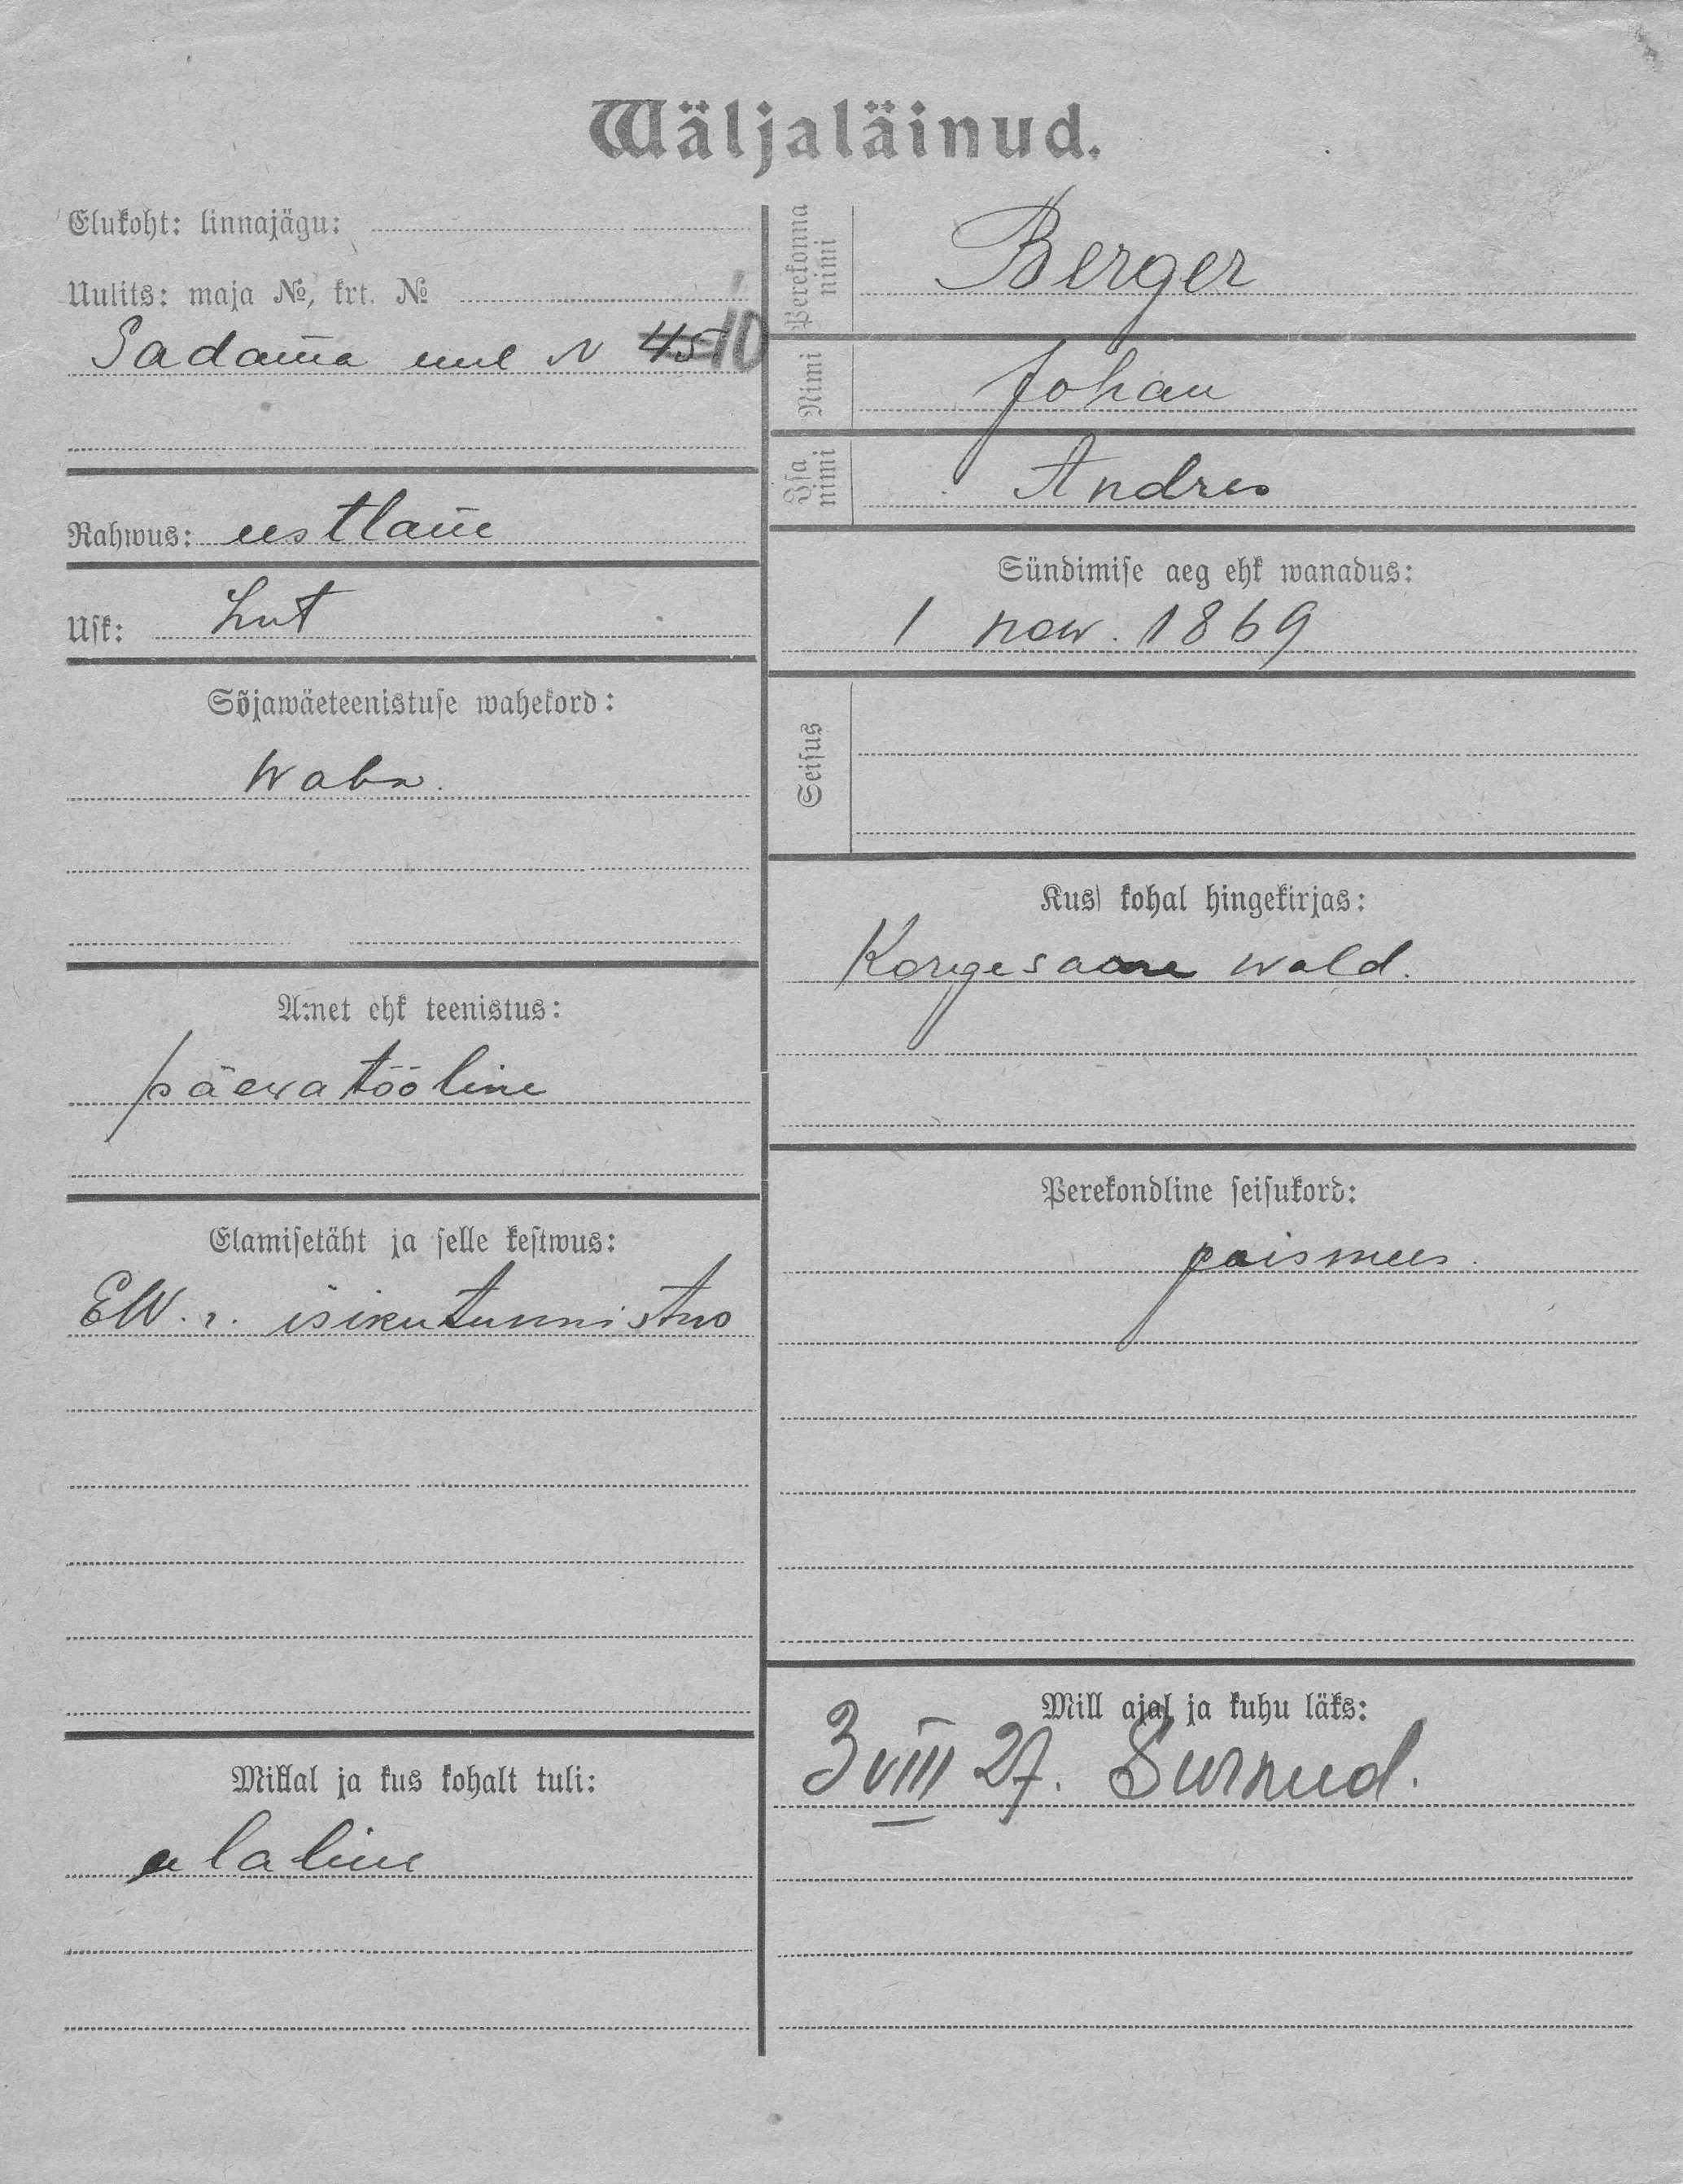 Wäljaläinud.
Elukoht: linnajägu:
Uulits: maja №, krt. №
Sadama uul N 45 10
Rahwus: eestlane
Usk: Lut
Sõjawäeteenistuse wahekord:
Waba.
Amet ehk teenistus:
päewatööline
Elamisetäht ja selle kestwus:
EW. r. isikutunnistus
Millal ja kus kohalt tuli:
alaline
Perekonna nimi
Berger
Nimi
Johan
Isa nimi
Andres
Sündimise aeg ehk wanadus:
1 now. 1869
Seisus
Kus kohal hingekirjas:
Korgesaare wald.
Perekondline seisukord:
poismees.
Mill ajal ja kuhu läks:
3 VIII 27. Surnud.